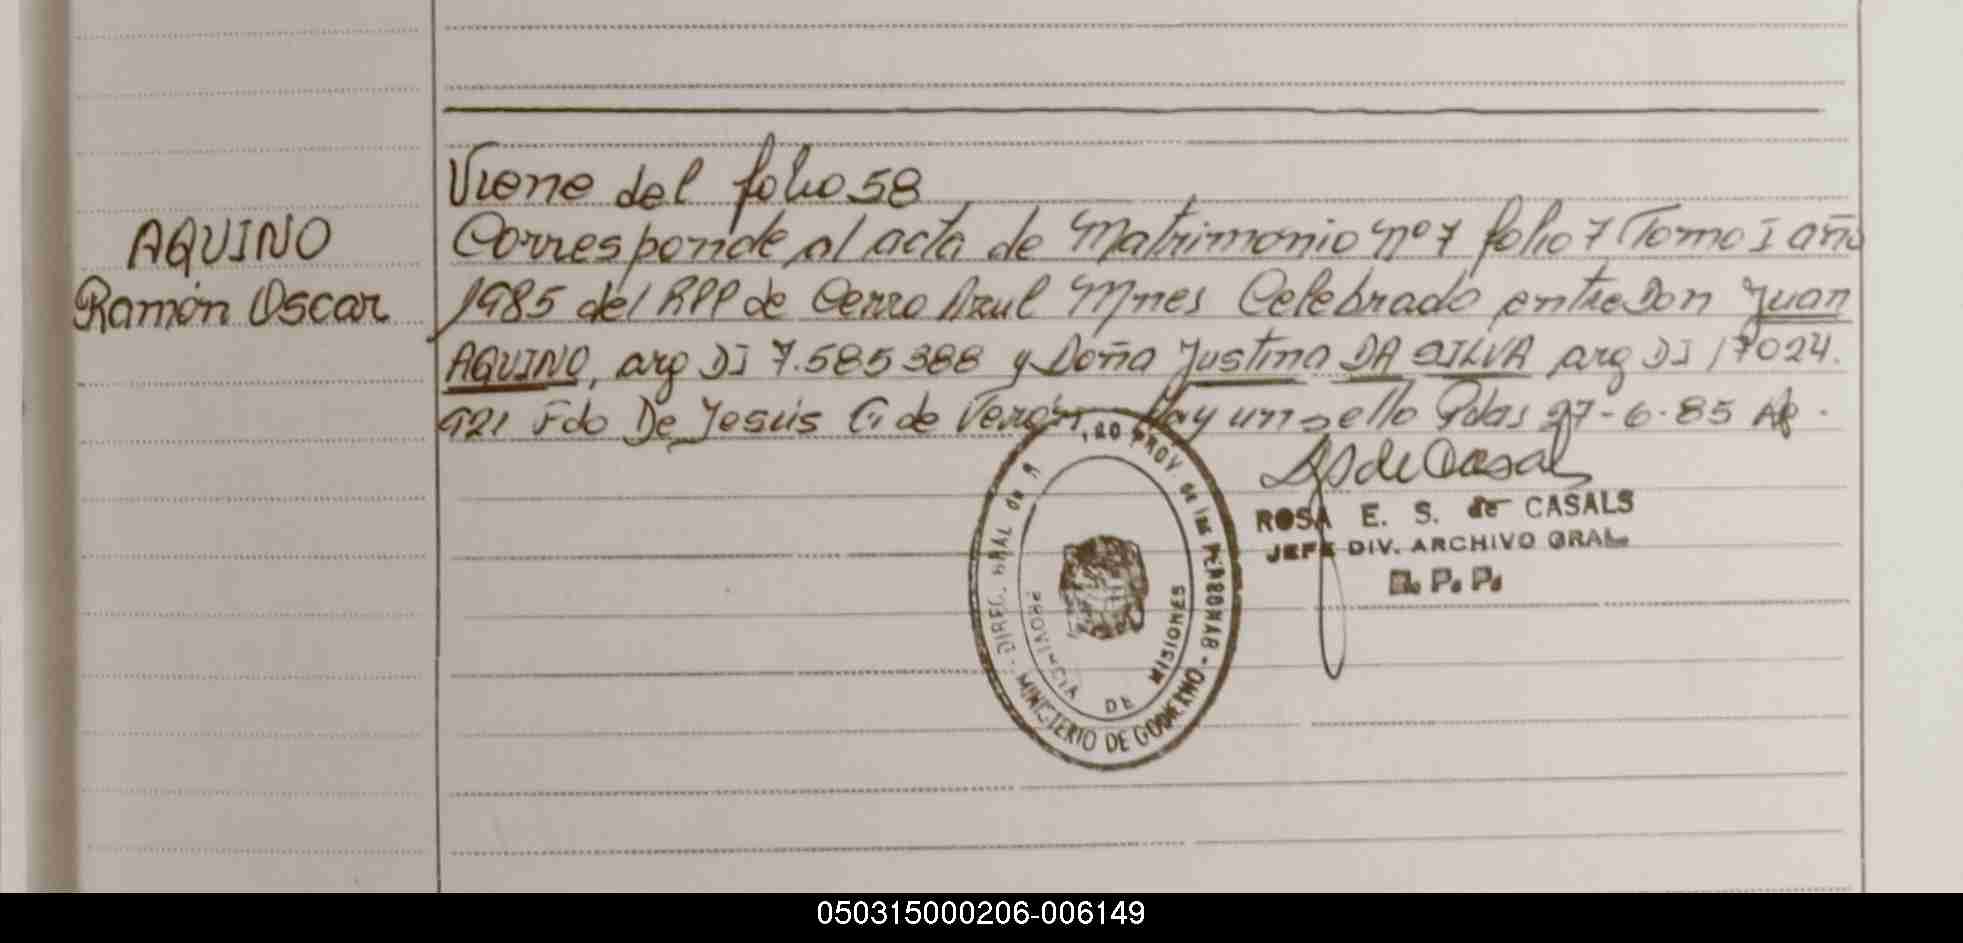 Viene del folio 58
AQUINO
Ramón Oscar
Corresponde al acta de Matrimonio nº 7 folio 7 Tomo I año
1985 del RPP de Cerro Azul Mnes Celebrado entre Don Juan
AQUINO, arg DI 7.585388 y Doña Justina DA SILVA arg DI 17024.
921 Fdo De Jesús G. de Verón Hay un sello Pdas 27-6-85
RS de Casals
ROSA E. S. de CASALS
JEFE DIV. ARCHIVO GRAL.
R. P. P.
DIREC. GRAL de PROV. de las PERSONAS - MINISTERIO DE GOBIERNO -
PROVINCIA DE MISIONES
050315000206-006149